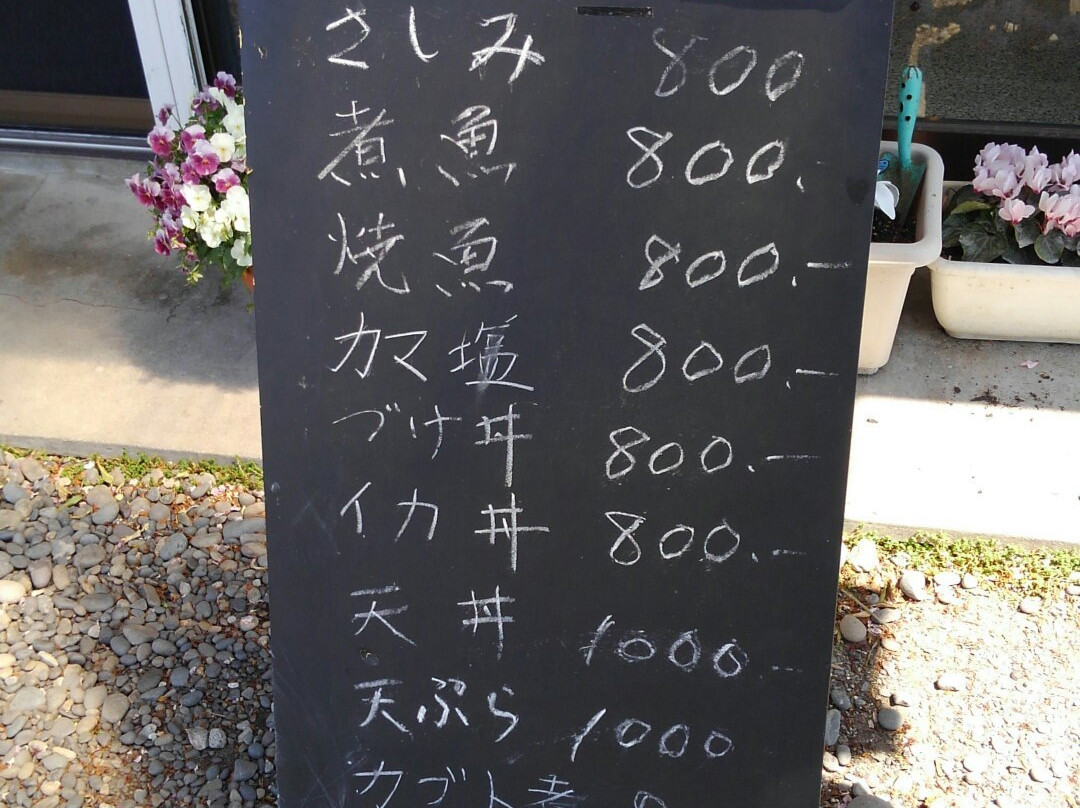 さしみ 800
煮魚 800.
焼魚 800.-
カマ塩 800.-
づけ丼 800.-
イカ丼 800.-
天丼 1000.-
天ぷら 1000
カブト煮